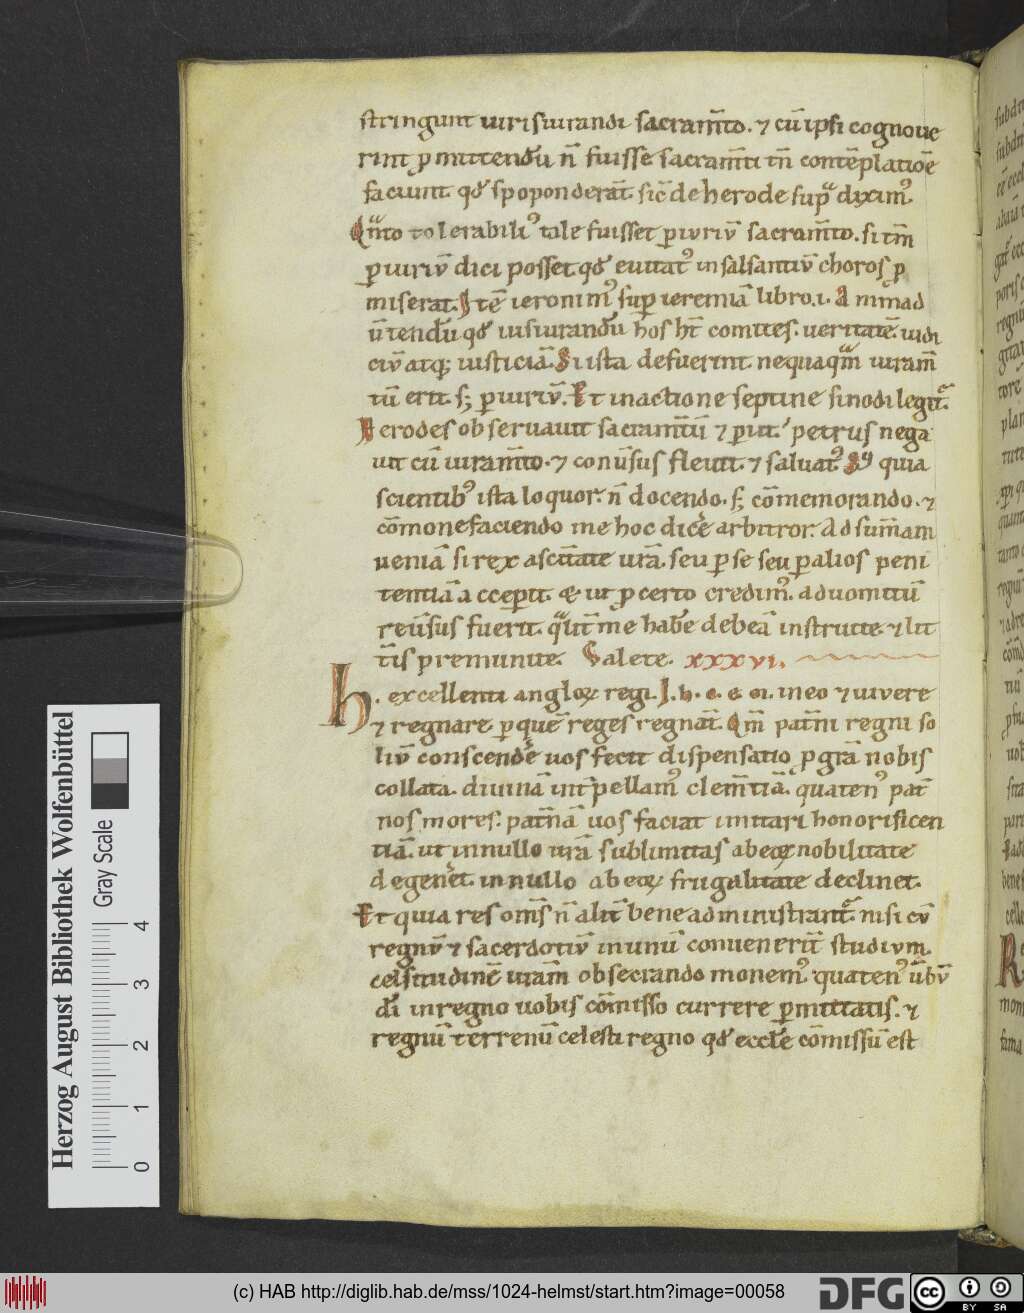 stringunt iurisiurandi sacram̅to. ⁊ cū ipsi cognoue
rint ꝑmittendū n̄ fuisse sacram̅ti tn̄ contēplatiōe
faciunt qđ spoponderāt. sic̄ de herode sup̄ᵃ diximꝰ.
Qᵃnto tolerabiliꝰ tale fuisset ꝑiuriū sacram̅to. si tm̄
ꝑiuriū dici posset qđ euitatꝰ in salsantiū choros ꝑ
miserat. Itē ieronimꝰ suꝑ ieremiā libro. i. Animad
ū tendū qđ iusiurandū hos ht̄ comites. ueritatē. iudi
ciū atq; iusticiā. Si ista defuerint. nequaqᵃm iuram̄
tū erit. s; ꝑiuriū. Et in actione septine sinodi legit᷑.
Herodes obseruauit sacram̅tū ⁊ ꝑiit. petrus nega
uit cū iuram̅to. ⁊ conūsus fleuit. ⁊ saluatꝰ. Sꝫ quia
scientibꝰ ista loquor. n̄ docendo. s; cōmemorando. ⁊
cōmonefaciendo me hoc dicē arbitror. Ad sum̄am
ueniā si rex a scīitate urā. seu ꝑ se seu ꝑ alios peni
tentiā acceꝑit. & ut ꝓ certo credimꝰ. ad uomitū
reūsus fuerīt. qᵃlit̄ me habē debeā instruite. ⁊ lit
t̄is premunite. Valete. xxxvi.
H. excellenti angloꝝ regi. I. h. e. e. m. in eo ⁊ uiuere
⁊ regnare. ꝑ quē reges regnāt. Qm̄ pat̄ni regni so
liū conscendē uos fecit dispensatio ꝑ gr̄am nobis
collata. diuinā int̄pellamꝰ clem̄tiā. quatenꝰ pat̄
nos mores. pat̄nā uos faciat imitari honorificen
tiā. ut in nullo urā sublimitas ab eoꝝ nobilitate
degenēt. in nullo ab eoꝝ frugalitate declinet.
Et quia res om̄s n̄ alit̄ bene administrant᷑. nisi cū
regnū ⁊ sacerdotiū in unū conuenerīt studium.
celsitudinē uram̄ obsecrando monemꝰ. quatenꝰ ūbū
dī in regno uobis cōmisso currere ꝑmittatis. ⁊
regnū terrenū celesti regno qđ eccłe cōmissū est
Herzog August Bibliothek Wolfenbüttel
Gray Scale
0 1 2 3 4
(c) HAB http://diglib.hab.de/mss/1024-helmst/start.htm?image=00058
DFG
cc BY SA